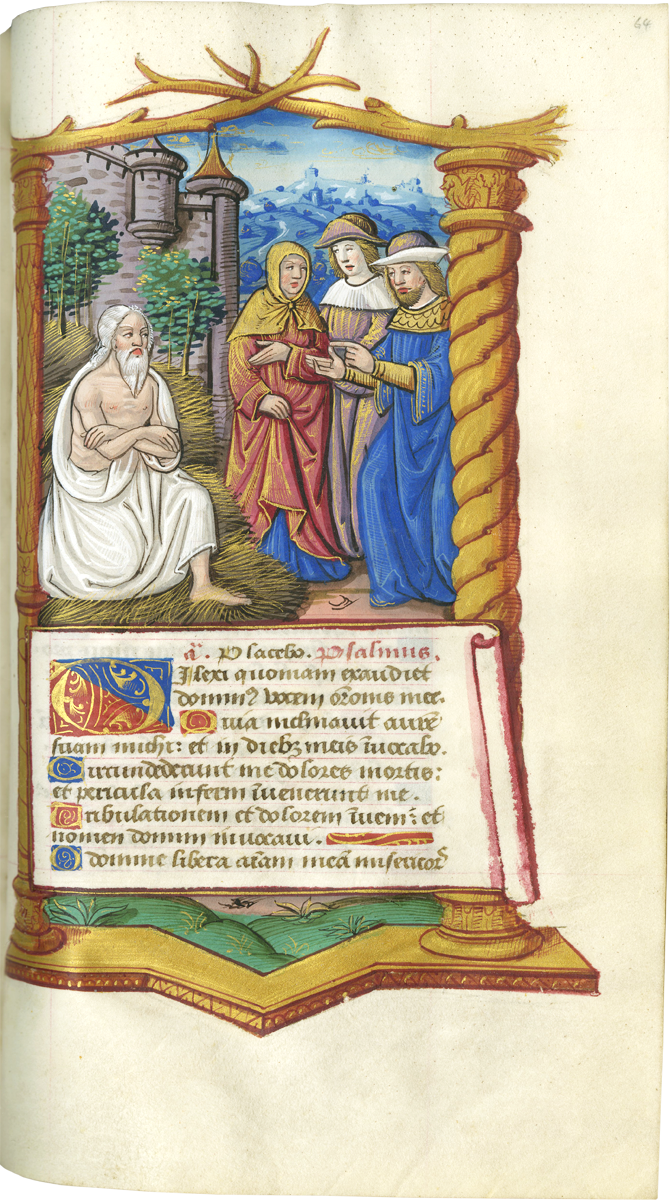 64
a͞. Placebo. Psalmus.
Dilexi quoniam exaudiet
dominꝰ vocem or̄onis mee.
Quia inclinauit aurē
suam michi: et in diebꝫ meis īuocabo.
Circundederunt me dolores mortis:
et pericula inferni īuenerunt me.
Tribulationem et dolorem īueni: et
nomen domini inuocaui.
O domine libera aīam meā misericor̄